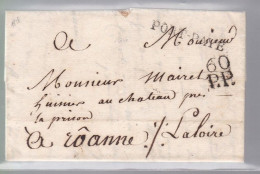 a Monsieur
PORT PAYÉ
60
P.P.
Monsieur Mairet
huissier au chateau près
la prison
a rôanne s/. Laloire